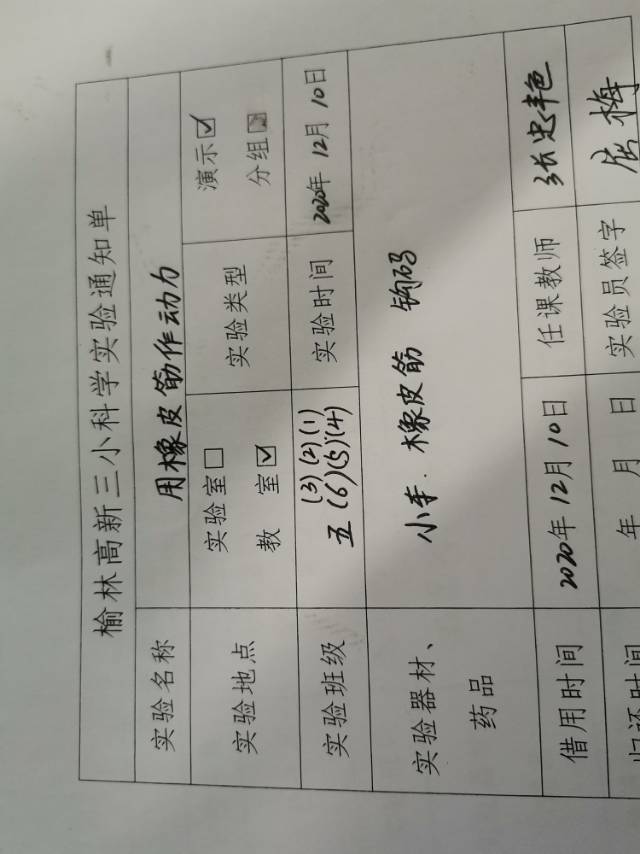 榆林高新三小科学实验通知单
实验名称 用橡皮筋作动力
实验地点 实验室□ 实验类型 演示☑
教 室☑ 分组□
实验班级 五 (3)(2)(1) 实验时间 2020年12月10日
(6)(5)(4)
实验器材、 小车. 橡皮筋 钩码
药品
借用时间 2020年12月10日 任课教师 张忠艳
归还时间 年 月 日 实验员签字 屈梅